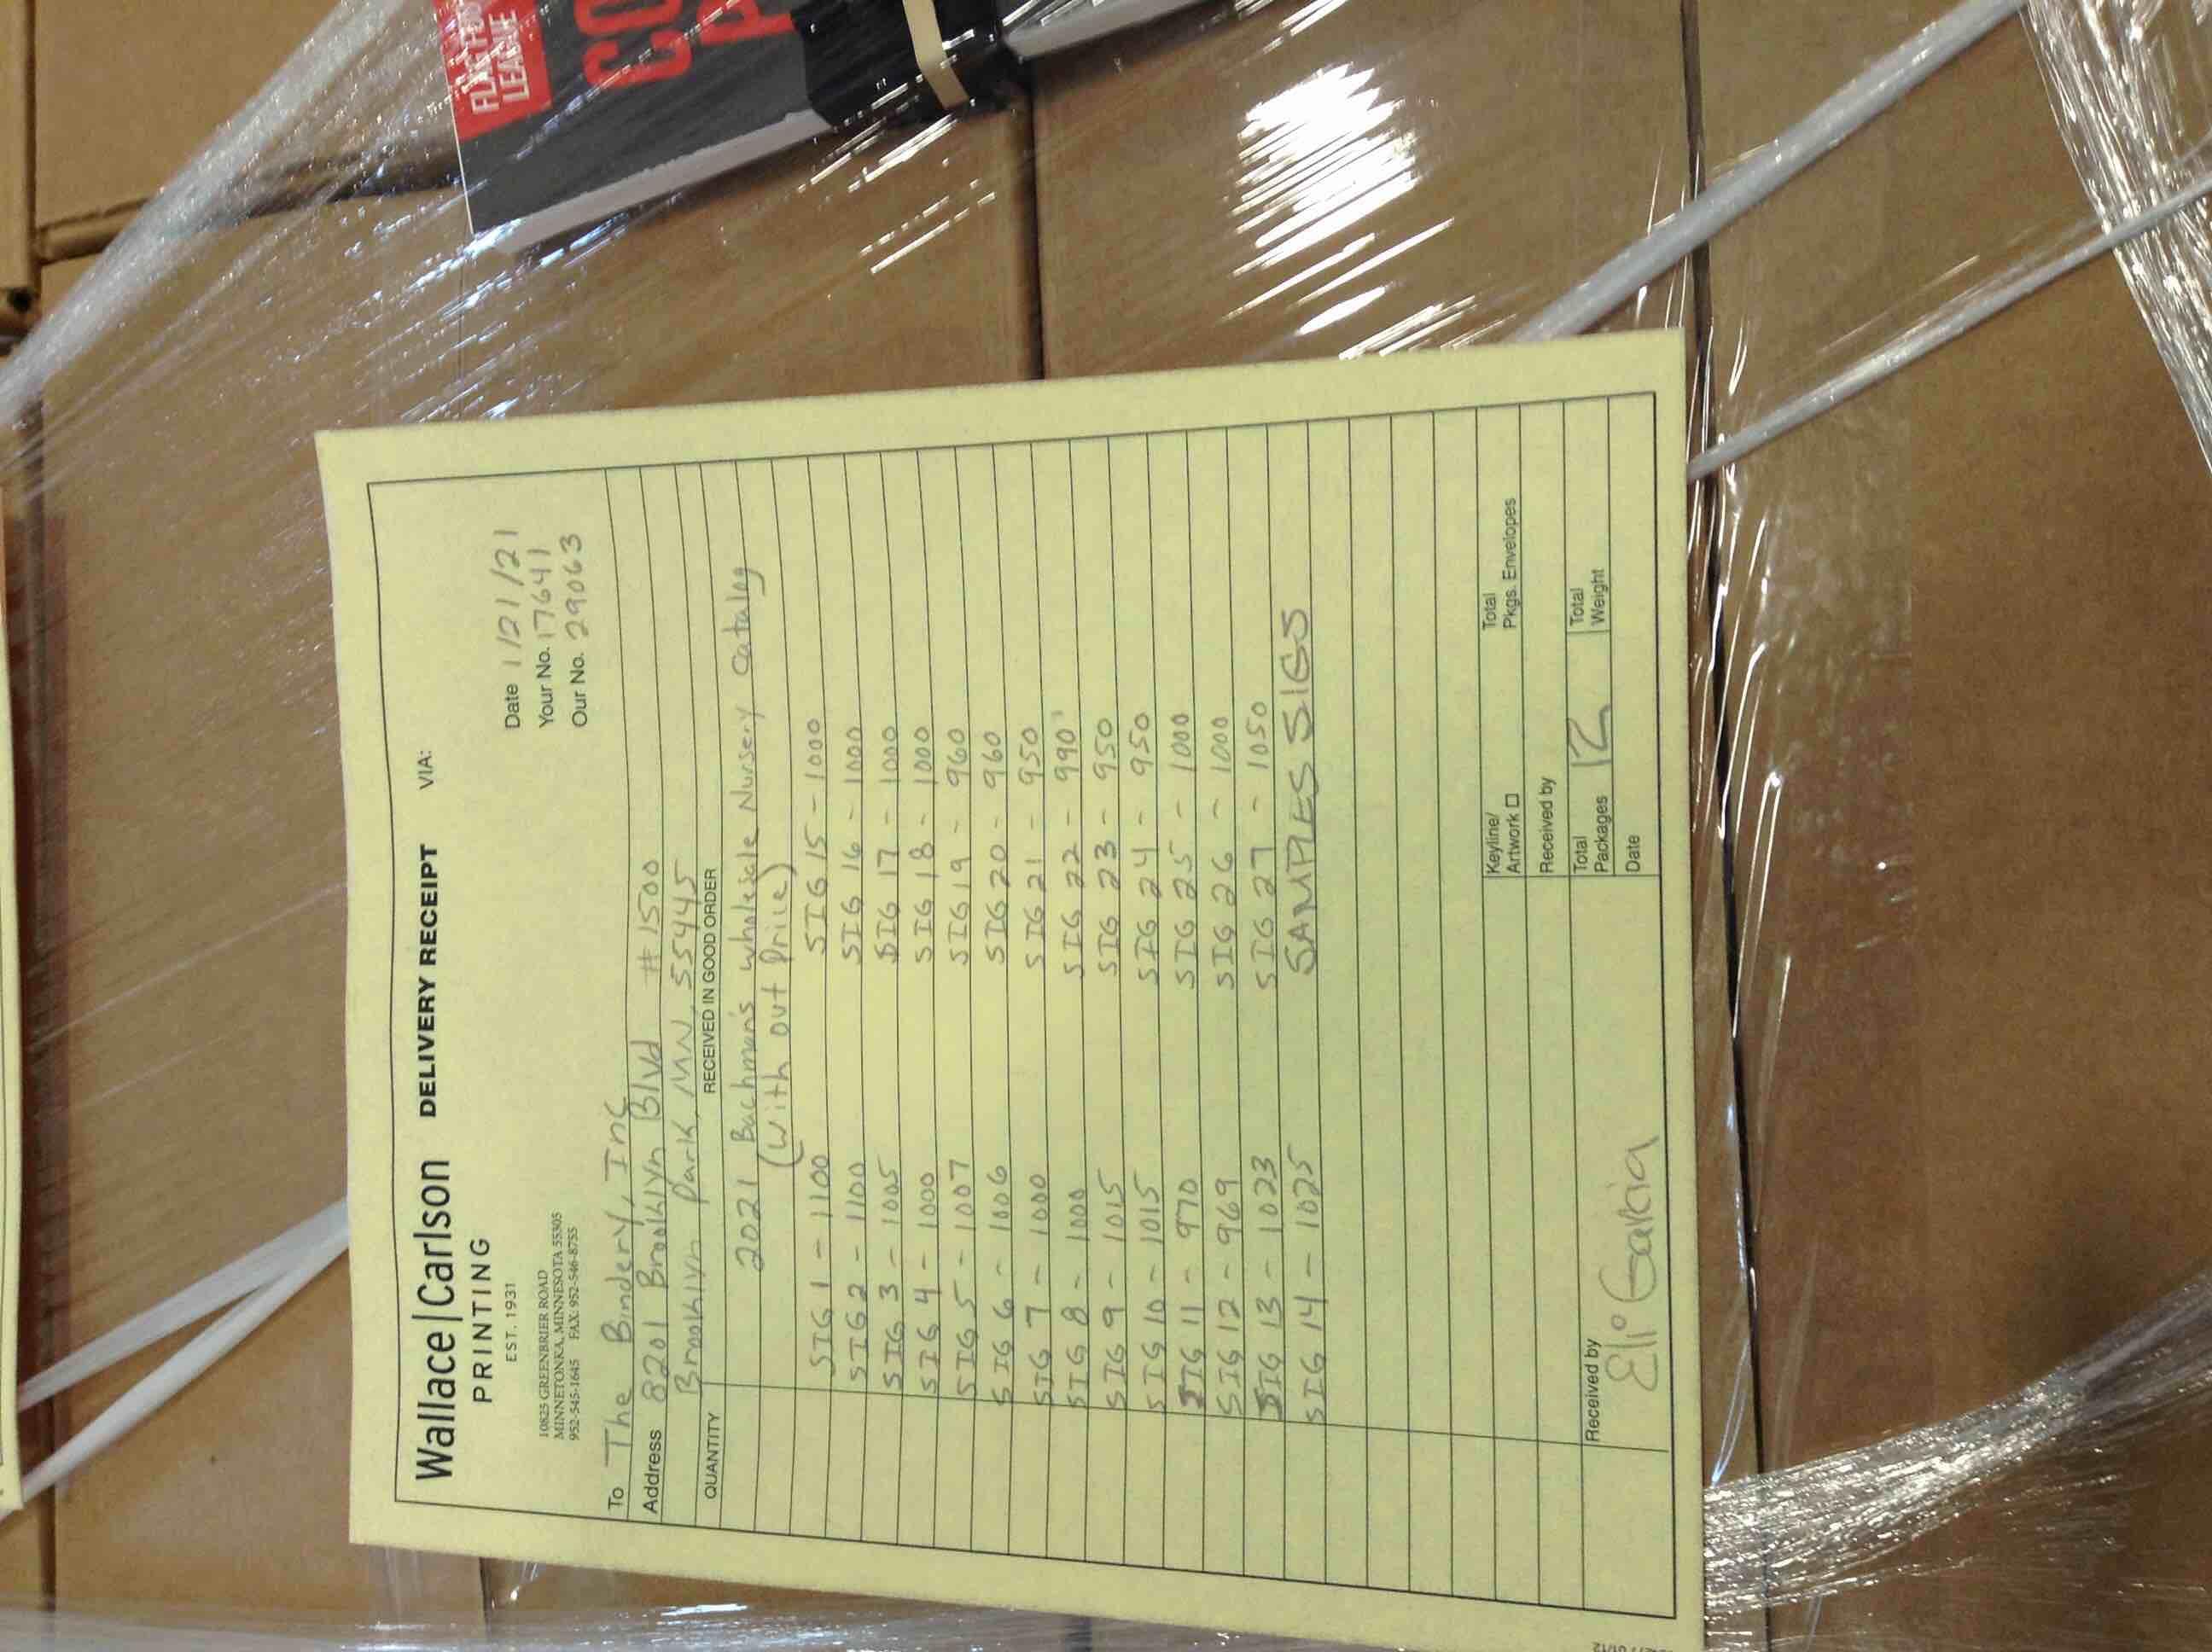 Wallace|Carlson DELIVERY RECEIPT VIA:
PRINTING
EST. 1931
Date 1/21/21
Your No. 17641
Our No. 29063
10825 GREENBRIER ROAD
MINNETONKA, MINNESOTA 55305
952-545-1645 FAX: 952-546-8755
To The Bindery, Inc
Address 8201 Brooklyn Blvd #1500
Brooklyn Park, MN, 55445
QUANTITY RECEIVED IN GOOD ORDER
2021 Bachman's wholesale Nursery Catalog
(With out Price)
SIG 1 - 1100 SIG 15 - 1000
SIG 2 - 1100 SIG 16 - 1000
SIG 3 - 1005 SIG 17 - 1000
SIG 4 - 1000 SIG 18 - 1000
SIG 5 - 1007 SIG 19 - 960
SIG 6 - 1006 SIG 20 - 960
SIG 7 - 1000 SIG 21 - 950
SIG 8 - 1000 SIG 22 - 990
SIG 9 - 1015 SIG 23 - 950
SIG 10 - 1015 SIG 24 - 950
SIG 11 - 970 SIG 25 - 1000
SIG 12 - 969 SIG 26 - 1000
SIG 13 - 1023 SIG 27 - 1050
SIG 14 - 1025 SAMPLES SIGS
Keyline/
Artwork
Total
Pkgs. Envelopes
Received by
Received by Eli Garcia
Total
Packages 12
Total
Weight
Date
LEAVE
CO